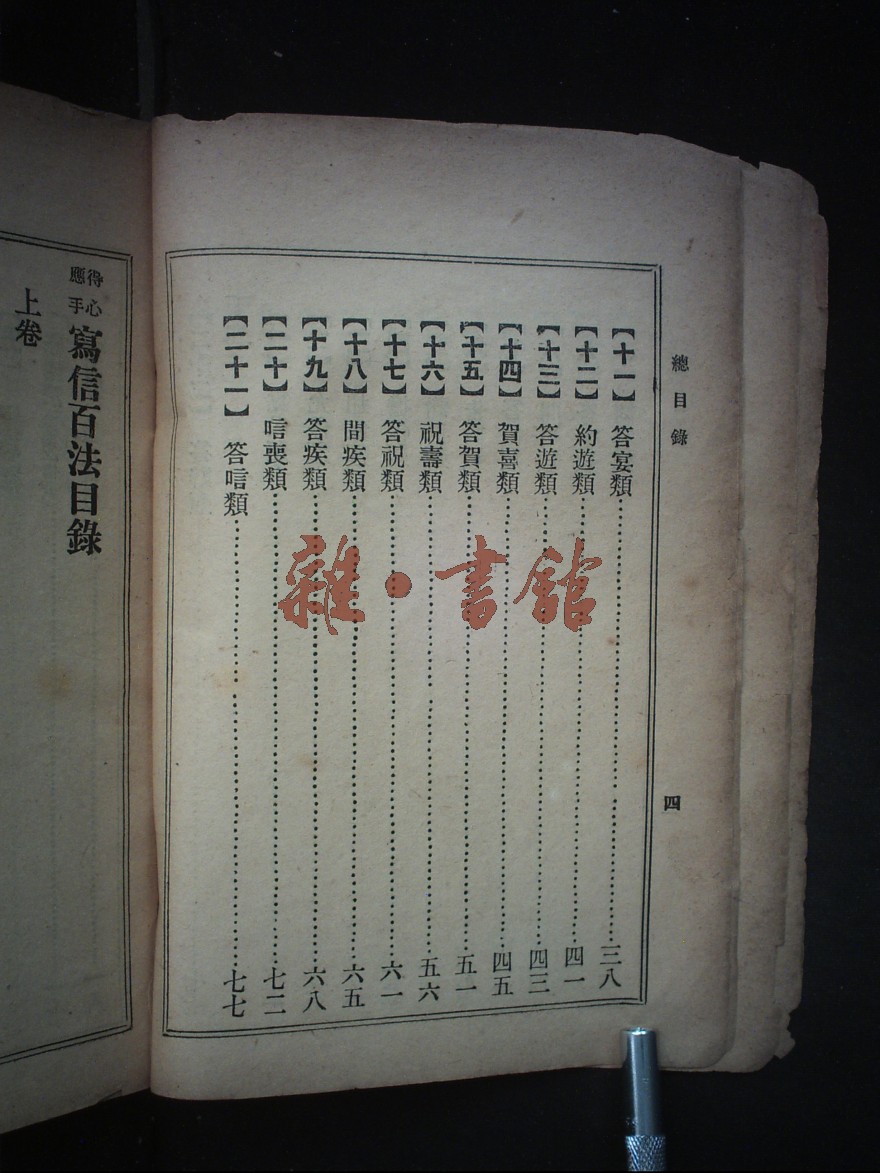 總目錄
四
【十一】 答宴類……三八
【十二】 約遊類……四一
【十三】 答遊類……四三
【十四】 賀喜類……四五
【十五】 答賀類……五一
【十六】 祝壽類……五六
【十七】 答祝類……六一
【十八】 問疾類……六五
【十九】 答疾類……六八
【二十】 唁喪類……七二
【二十一】 答唁類……七七
得心應手 寫信百法目錄
上卷
雜·書館